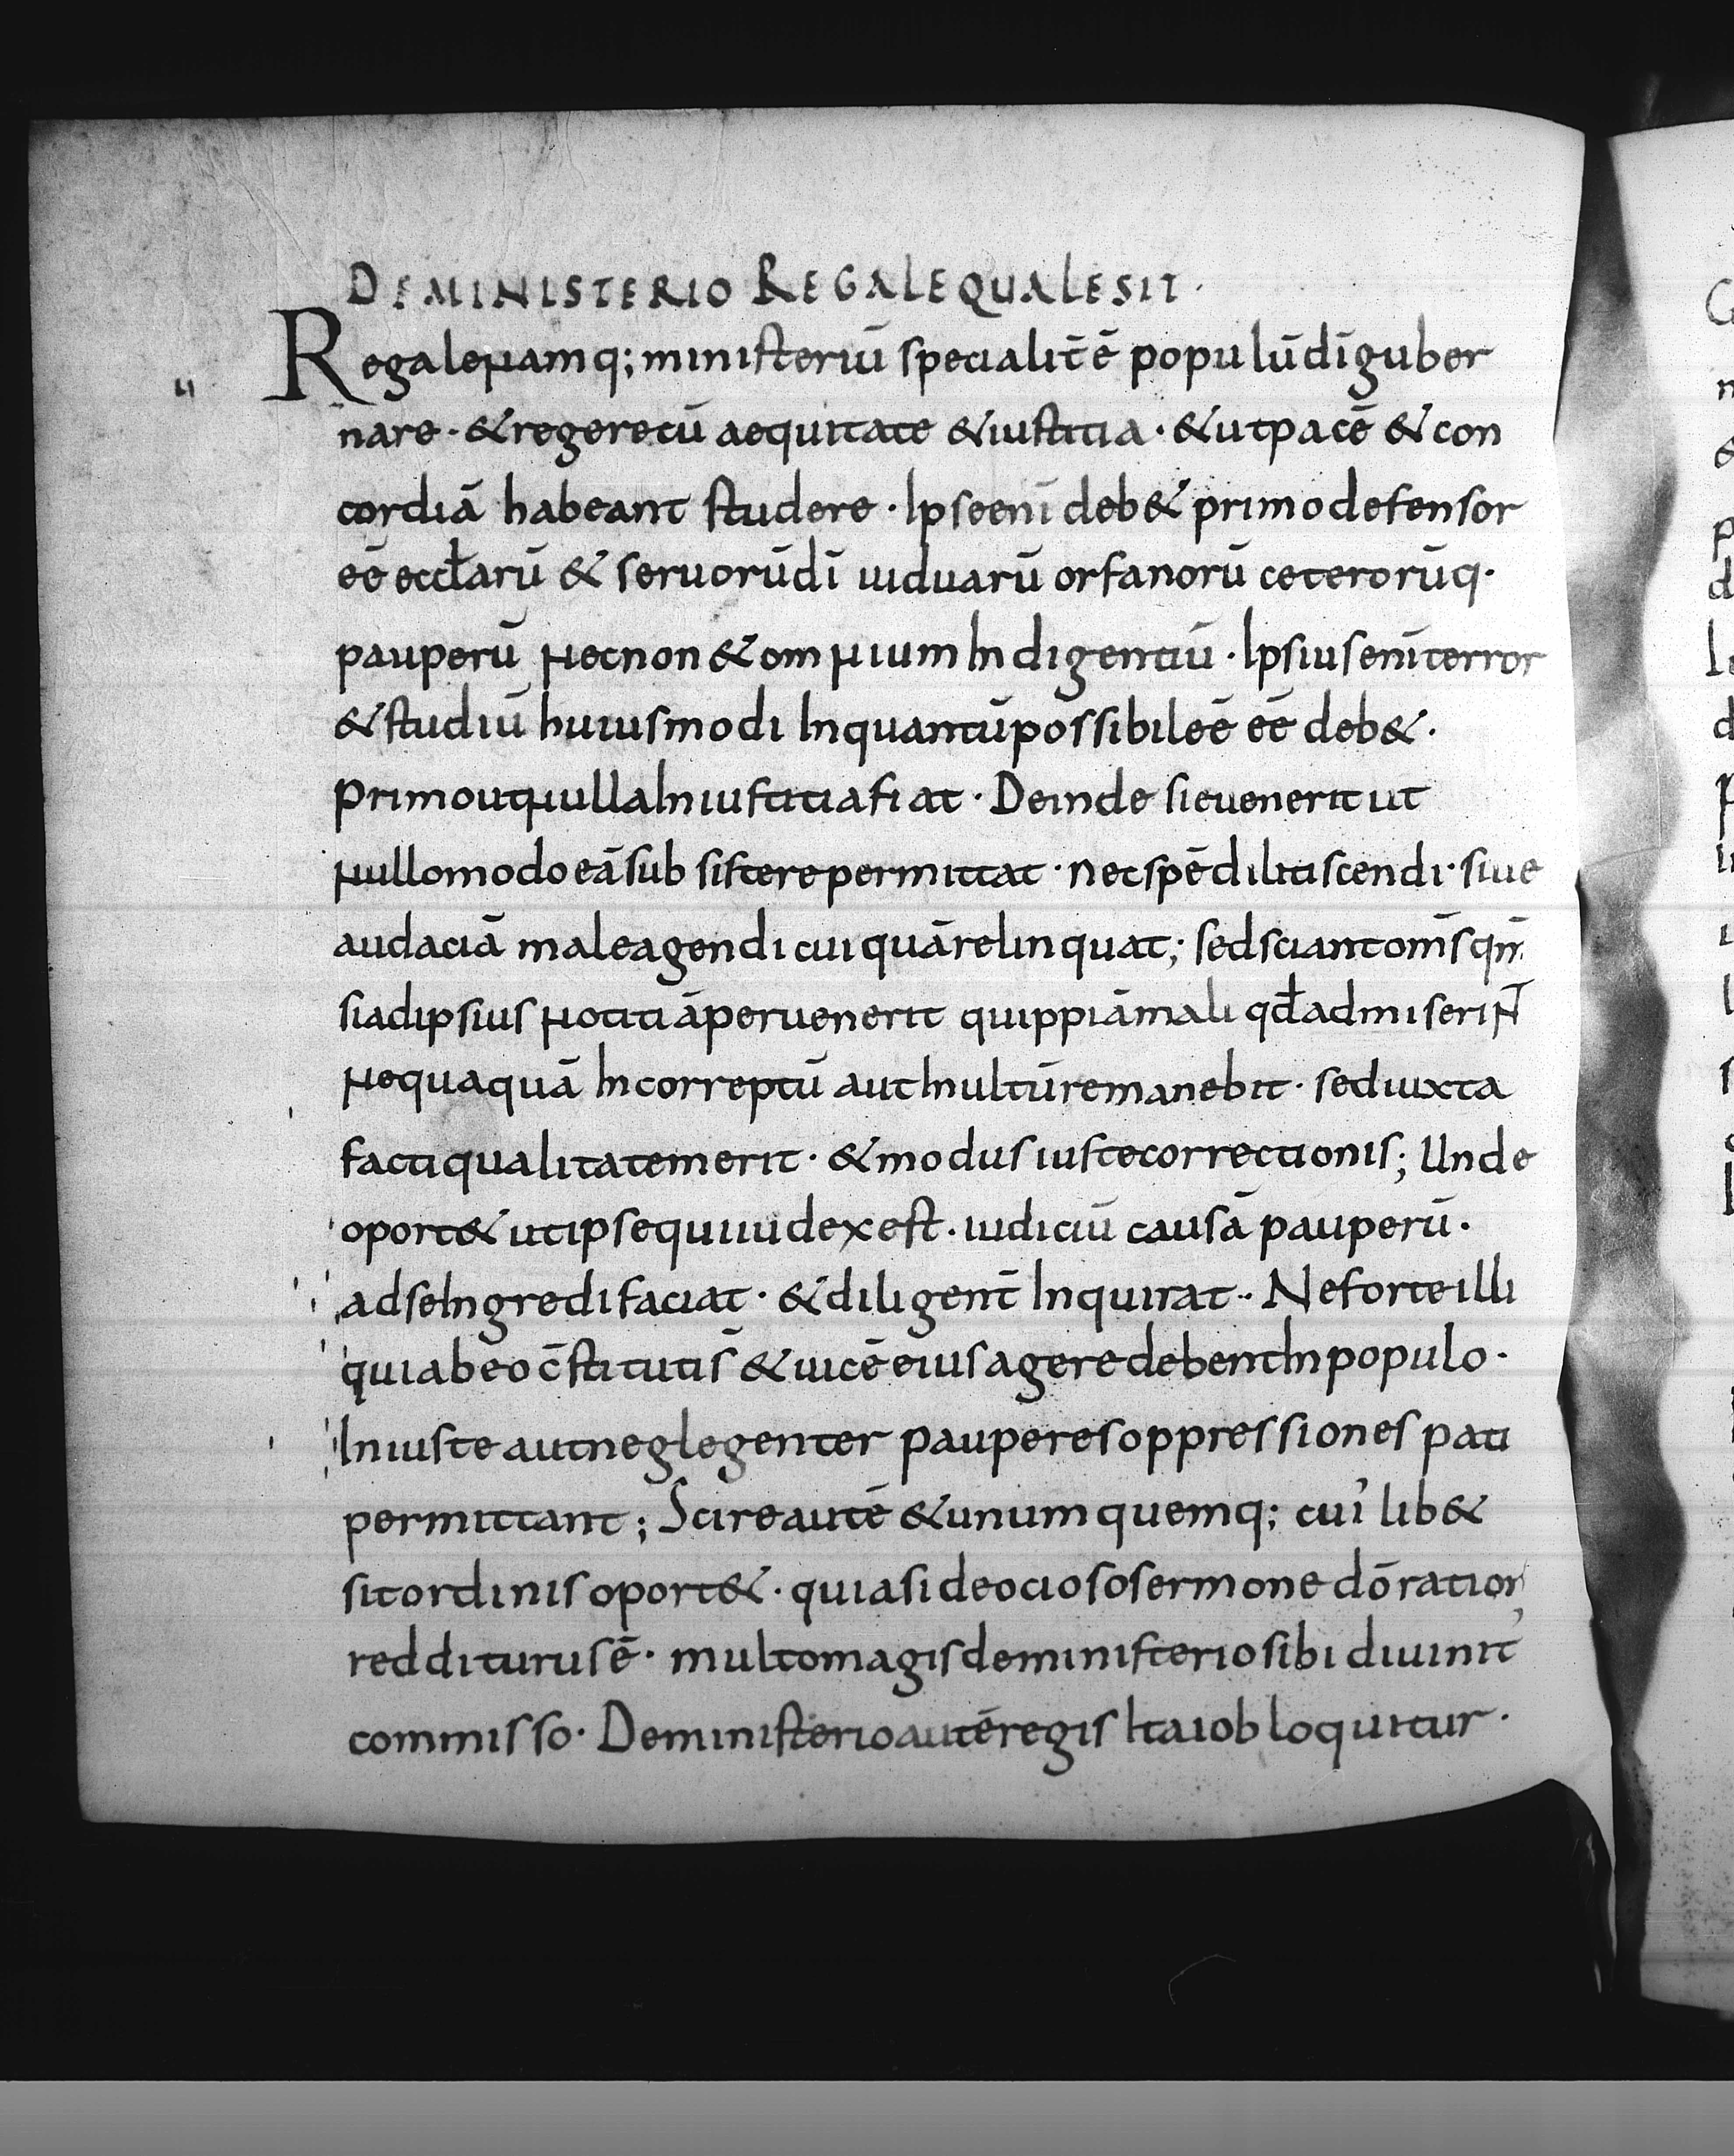 DE MINISTERIO REGALE QUALE SIT·
Regale namq; ministeriū specialit̄ ē populū dī guber
nare· & regere cū aequitate & iustitia· & ut pacē & con
cordiā habeant studere· Ipse enī deb& primo defensor
eē eccłarū & seruorū dī uiduarū orfanorū ceterorūq·
pauperū necnon & omnium Indigentiū· Ipsius enī terror
& studiū huiusmodi Inquantū possibile ē eē deb&·
primo ut nulla Iniustitia fiat· Deinde si euenerit ut
nullomodo eā subsistere permittat· nec spē dilitiscendi· siue
audaciā male agendi cuiquā relinquat; sed sciant om̄s qm̄
si ad ipsius notitiā peruenerit quippiā mali qđ admiserint
nequaquā Incorreptū aut Inultū remanebit· sed iuxta
facti qualitatem erit· & modus iuste correctionis; Unde
oport& ut ipse qui iudex est· iudiciū causā pauperū·
ad se Ingredi faciat· & diligent̄ Inquirat·· Ne forte illi
qui ab eo c̄stituti s̄ & uicē eius agere debent In populo·
Iniuste aut neglegenter pauperes oppressiones pati
permittant; Scire autē & unumquemq; cui' lib&
sit ordinis oport&· quia si de ocioso sermone dō ration
redditurus ē· multo magis de ministerio sibi diuinit'
commisso· De ministerio autē regis Ita iob loquitur·